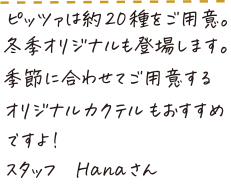 ピッツァは約20種をご用意。
冬季オリジナルも登場します。
季節に合わせてご用意する
オリジナルカクテルもおすすめ
ですよ！
スタッフ　Hanaさん